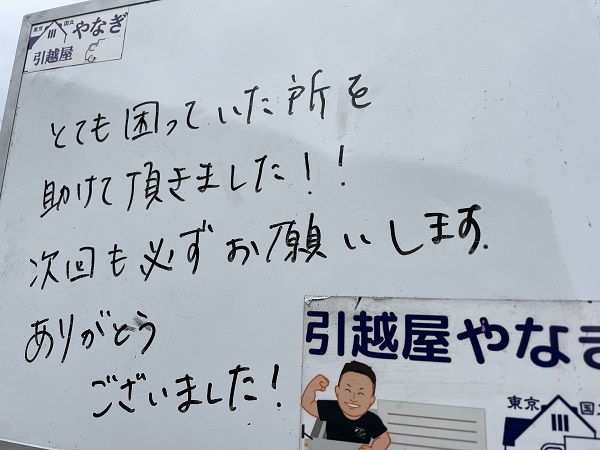 東京 国立 やなぎ
引越屋
とても困っていた所を
助けて頂きました!!
次回も必ずお願いします.
ありがとう
ございました!
引越屋やなぎ
東京 国